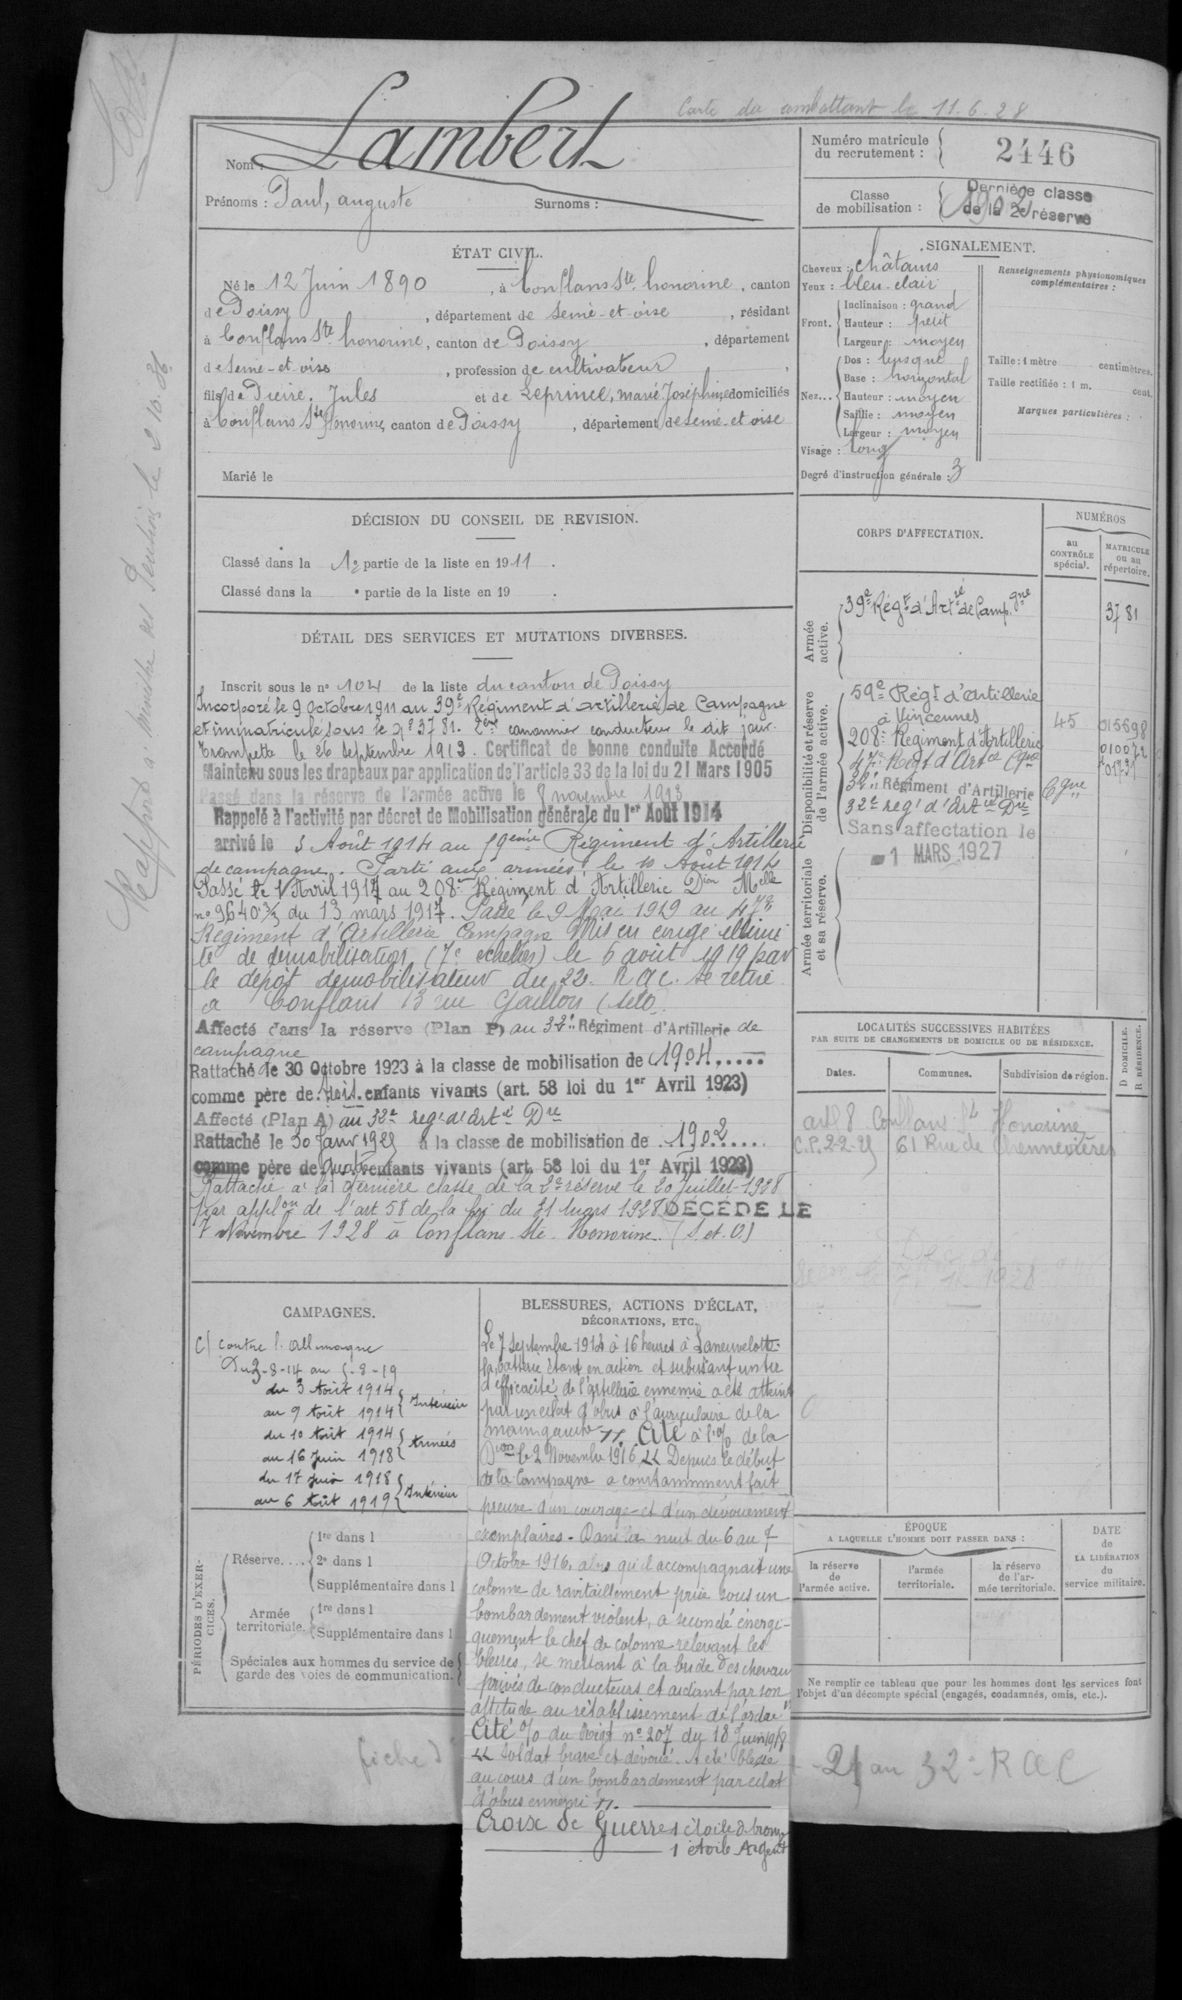 Carte du combattant le 11.6.28
Nom : Lambert
Prénoms : Paul, auguste Surnoms :
Numéro matricule du recrutement : 2446
Classe de mobilisation : 1902
Dernière classe de la 2e réserve
ÉTAT CIVIL.
Né le 12 Juin 1890, à Conflans Ste honorine, canton
de Poissy, département de Seine-et-oise, résidant
à Conflans Ste honorine, canton de Poissy, département
de Seine-et-oise, profession de cultivateur,
fils de Pierre, Jules et de Leprince, marie Joséphine domiciliés
à Conflans Ste Honorine, canton de Poissy, département de Seine-et-oise
Marié le
SIGNALEMENT.
Cheveux : châtains
Yeux : bleu-clair
Front. Inclinaison : grand
Hauteur : petit
Largeur : moyen
Nez... Dos : busqué
Base : horizontal
Hauteur : moyen
Saillie : moyen
Largeur : moyen
Visage : long
Degré d'instruction générale : 3
Renseignements physionomiques complémentaires :
Taille : 1 mètre centimètres.
Taille rectifiée : 1 m. cent.
Marques particulières :
DÉCISION DU CONSEIL DE REVISION.
Classé dans la 1e partie de la liste en 1911.
Classé dans la e partie de la liste en 19 .
DÉTAIL DES SERVICES ET MUTATIONS DIVERSES.
Inscrit sous le n° 104 de la liste du canton de Poissy
Incorporé le 9 Octobre 1911 au 39e Régiment d'artillerie de Campagne
et immatriculé sous le n° 3781. 2ème canonnier conducteur le dit jour.
Trompette le 26 septembre 1913. Certificat de bonne conduite Accordé
Maintenu sous les drapeaux par application de l'article 33 de la loi du 21 Mars 1905
Passé dans la réserve de l'armée active le 8 novembre 1913
Rappelé à l'activité par décret de Mobilisation générale du 1er Août 1914
arrivé le 3 Août 1914 au 59ème Régiment d'Artillerie
de campagne. Parti aux armées le 10 Août 1914
Passé le 1 Avril 1917 au 208e Régiment d'Artillerie Don Melle
n° 9640 3/3 du 13 mars 1917. Passé le 9 Mai 1919 au 47e
Régiment d'Artillerie Campagne Mis en congé illimi
té de démobilisation (7e echelon) le 6 août 1919 par
le dépôt démobilisateur du 22e R.a.c. se retire
a Conflans 13 rue Gaillon (S et O).
Affecté dans la réserve (Plan P) au 32e Régiment d'Artillerie de
campagne
Rattaché le 30 Octobre 1923 à la classe de mobilisation de 1904.....
comme père de trois enfants vivants (art. 58 loi du 1er Avril 1923)
Affecté (Plan A) au 32e reg. d'artie Dre
Rattaché le 30 Janv 1925 à la classe de mobilisation de 1902
comme père de quatre enfants vivants (art. 58 loi du 1er Avril 1923)
Rattaché à la dernière classe de la 2e réserve le 20 Juillet-1928
par applon de l'art 58 de la loi du 31 mars 1928 DECEDE LE
7 Novembre 1928 à Conflans Ste Honorine. (S. et. O.)
CORPS D'AFFECTATION.
NUMÉROS
au CONTRÔLE spécial.
MATRICULE ou au répertoire.
Armée active.
39e Régt d'Artie de Campgne 3781
Disponibilité et réserve de l'armée active.
59e Régt d'artillerie
à Vincennes 45 015698
208e Régiment d'Artillerie 010072
47e Régt d'Artie Cgne 01731
32e Régiment d'Artillerie Cgne
32e reg' d'Artie Dre
Sans affectation le
-1 MARS 1927
Armée territoriale et sa réserve.
LOCALITÉS SUCCESSIVES HABITÉES
PAR SUITE DE CHANGEMENTS DE DOMICILE OU DE RÉSIDENCE.
Dates. Communes. Subdivision de région. D DOMICILE. R RÉSIDENCE.
art 8 Conflans Ste Honorine
C.P. 2-2-25 61 Rue de Chennevières
Décédé
7 11 1928
CAMPAGNES.
C/ contre l'Allemagne
Du 3-8-14 au 5-8-19
du 3 Août 1914
au 9 Août 1914 Intérieur
du 10 Août 1914
au 16 Juin 1918 Armées
du 17 Juin 1918
au 6 Août 1919 Intérieur
BLESSURES, ACTIONS D'ÉCLAT,
DÉCORATIONS, ETC.
Le 7 septembre 1914 à 16 heures à Laneuvelotte
sa batterie étant en action et subissant un tir
d'efficacité de l'artillerie ennemie a été atteint
par un éclat d'obus à l'auriculaire de la
main gauche". Cité à l'o/o de la
Dion le 2 Novembre 1916 " Depuis le début
de la Campagne a constamment fait
preuve d'un courage et d'un dévouement
exemplaires. Dans la nuit du 6 au 7
Octobre 1916, alors qu'il accompagnait une
colonne de ravitaillement prise sous un
bombardement violent, a secondé énergi-
quement le chef de colonne relevant les
blessés, se mettant à la bride des chevaux
privés de conducteurs et aidant par son
attitude au rétablissement de l'ordre"
Cité o/o du Regt n° 207 du 18 Juin 1918
" Soldat brave et dévoué. A été blessé
au cours d'un bombardement par éclat
d'obus ennemi ".
Croix de Guerre 1 étoile de bronze
1 étoile Argent
PÉRIODES D'EXERCICES.
Réserve.... 1re dans l
2e dans l
Supplémentaire dans l
Armée territoriale. 1re dans l
Supplémentaire dans l
Spéciales aux hommes du service de garde des voies de communication.
ÉPOQUE
A LAQUELLE L'HOMME DOIT PASSER DANS :
la réserve de l'armée active. l'armée territoriale. la réserve de l'armée territoriale.
DATE de LA LIBÉRATION du service militaire.
Ne remplir ce tableau que pour les hommes dont les services font
l'objet d'un décompte spécial (engagés, condamnés, omis, etc.).
fiche
au 32e R a C
Rapport à ministre des Pensions le 2.10.36